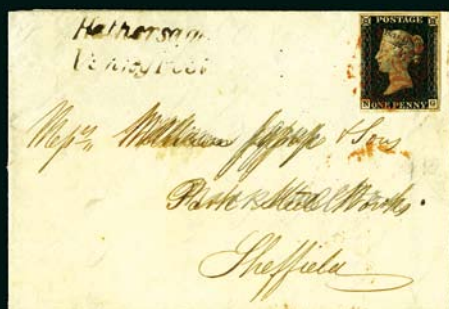 Hathersage
Penny Post
POSTAGE
ONE PENNY
Messrs William & Sons
Park Works.
Sheffield